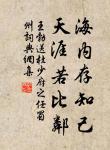 海内存知己
天涯若比鄰
王勃送杜少府之任蜀
州詞典網集